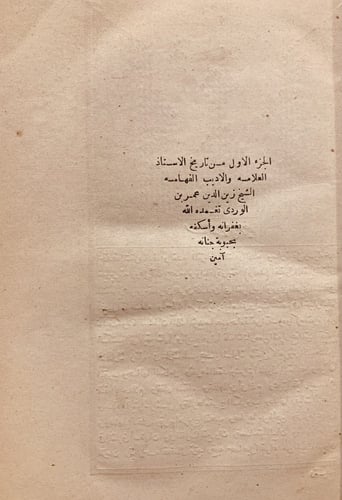 الجزء الاول من تاريخ الاستاذ
العلامه والاديب الفهامه
الشيخ زين الدين عمر بن
الوردى تغمده الله
بغفرانه وأسكنه
بحبوبة جنانه
آمين